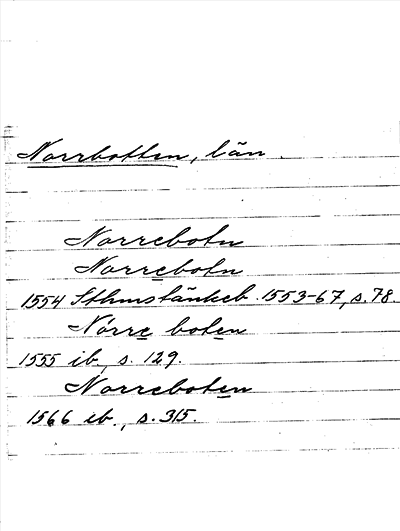 Norrbotten, län.
Norrebotn
Norrebotn
1554 Sthmstänkeb. 1553-67, s. 78.
Nörre boten
1555 ib., s. 129.
Norreboten
1566 ib., s. 315.